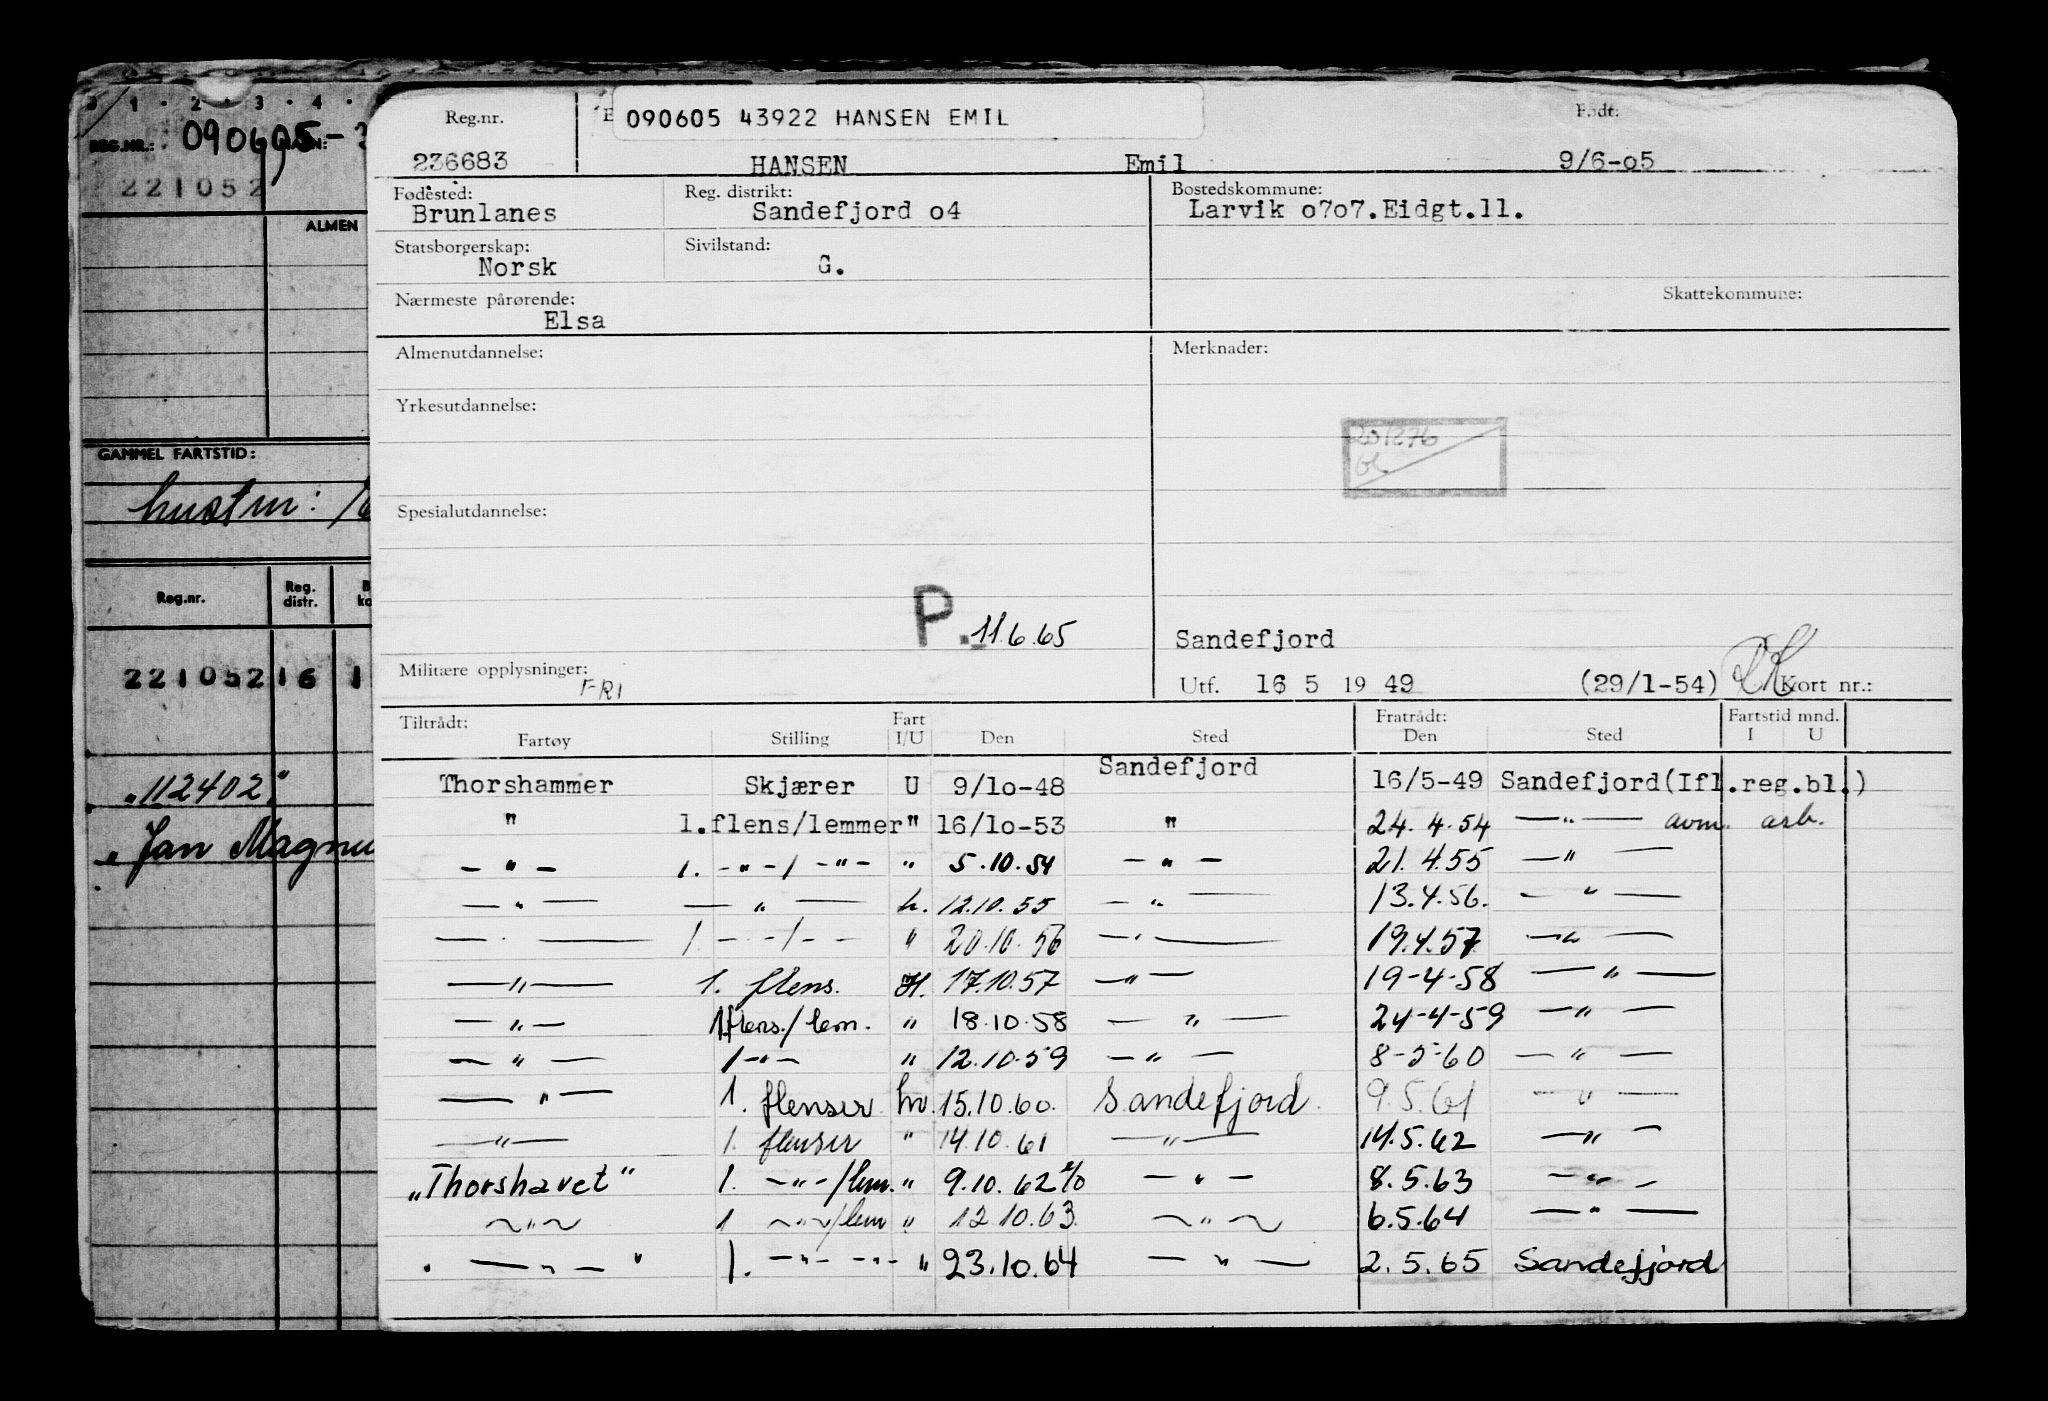 Reg.nr. 090605 43922 HANSEN EMIL Født:
236683 HANSEN Emil 9/6-o5
Fødested: Reg. distrikt: Bostedskommune:
Brunlanes Sandefjord o4 Larvik o7o7.Eidgt.11.
Statsborgerskap: Sivilstand:
Norsk G.
Nærmeste pårørende: Skattekommune:
Elsa
Almenutdannelse: Merknader:
Yrkesutdannelse:
201276
Spesialutdannelse:
P. 11.6.65
Sandefjord
Militære opplysninger: FRI
Utf. 16 5 19 49 (29/1-54) Kort nr.:
Tiltrådt: Fart Fratrådt: Fartstid mnd.
Fartøy Stilling I/U Den Sted Den Sted I U
Thorshammer Skjærer U 9/1o-48 Sandefjord 16/5-49 Sandefjord(Ifl.reg.bl.)
" 1.flens/lemmer " 16/1o-53 " 24.4.54 —"— avm. arb.
— " — 1. -"-/-"- " 5.10.54 — " — 21.4.55 —"—
— " — — " — h. 12.10.55 — " 13.4.56. — " —
— " — 1. - - -/- - " 20.10.56 —"— 19.4.57 —"—
—"— 1. flens. H. 17.10.57 —"— 19-4-58 —"—
—"— 1.flens./lem. " 18.10.58 — " — 24-4-59 —"—
— " — 1-"- " 12.10.59 —"— 8-5-60 — " —
— " — 1. flenser hv. 15.10.60. Sandefjord. 9.5.61 — " —
—"— 1. flenser " 14.10.61 —"— 14.5.62 —"—
„Thorshavet" 1. -"-/lem. " 9.10.62 — " — 8.5.63 —"—
~"~ 1 ~"~/lem " 12.10.63. ~"~ 6.5.64 —"—
" — " — " 1. -"- -"- " 23.10.64 — " — 2.5.65 Sandefjord
REG.NR.: 090605- NAVN:
221052
ALMEN
GAMMEL FARTSTID:
hustru:
Reg.nr. Reg. distr.
221052 16 1
„112402"
„Jan Magnu